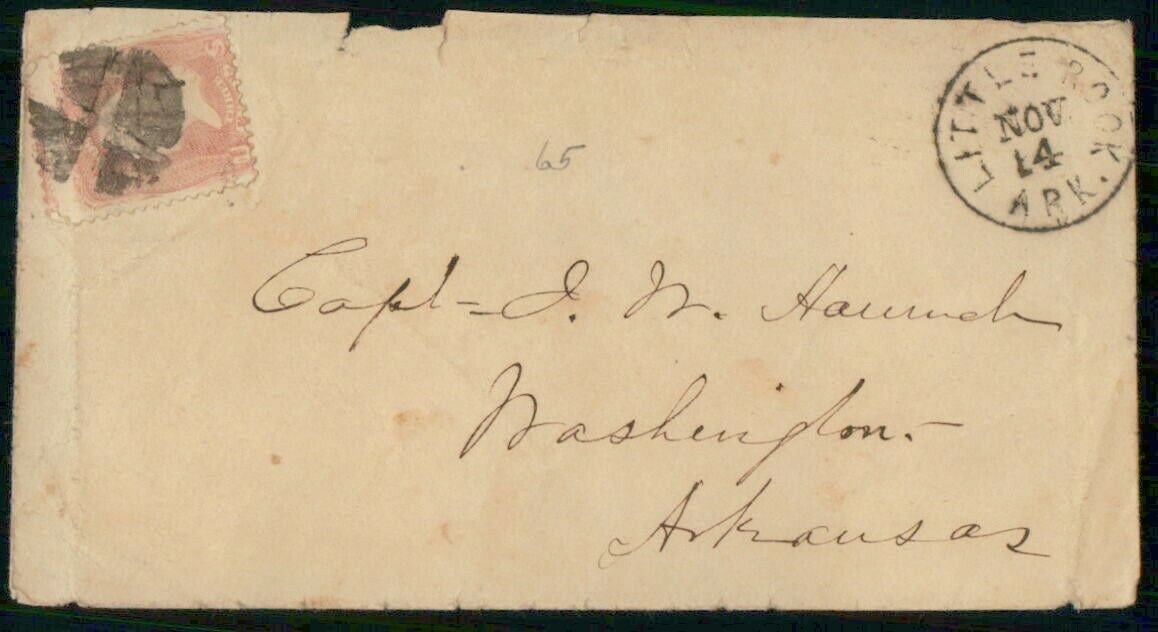 LITTLE ROCK
NOV
14
ARK.
65
Capt= J. W.
Washington.-
Arkansas